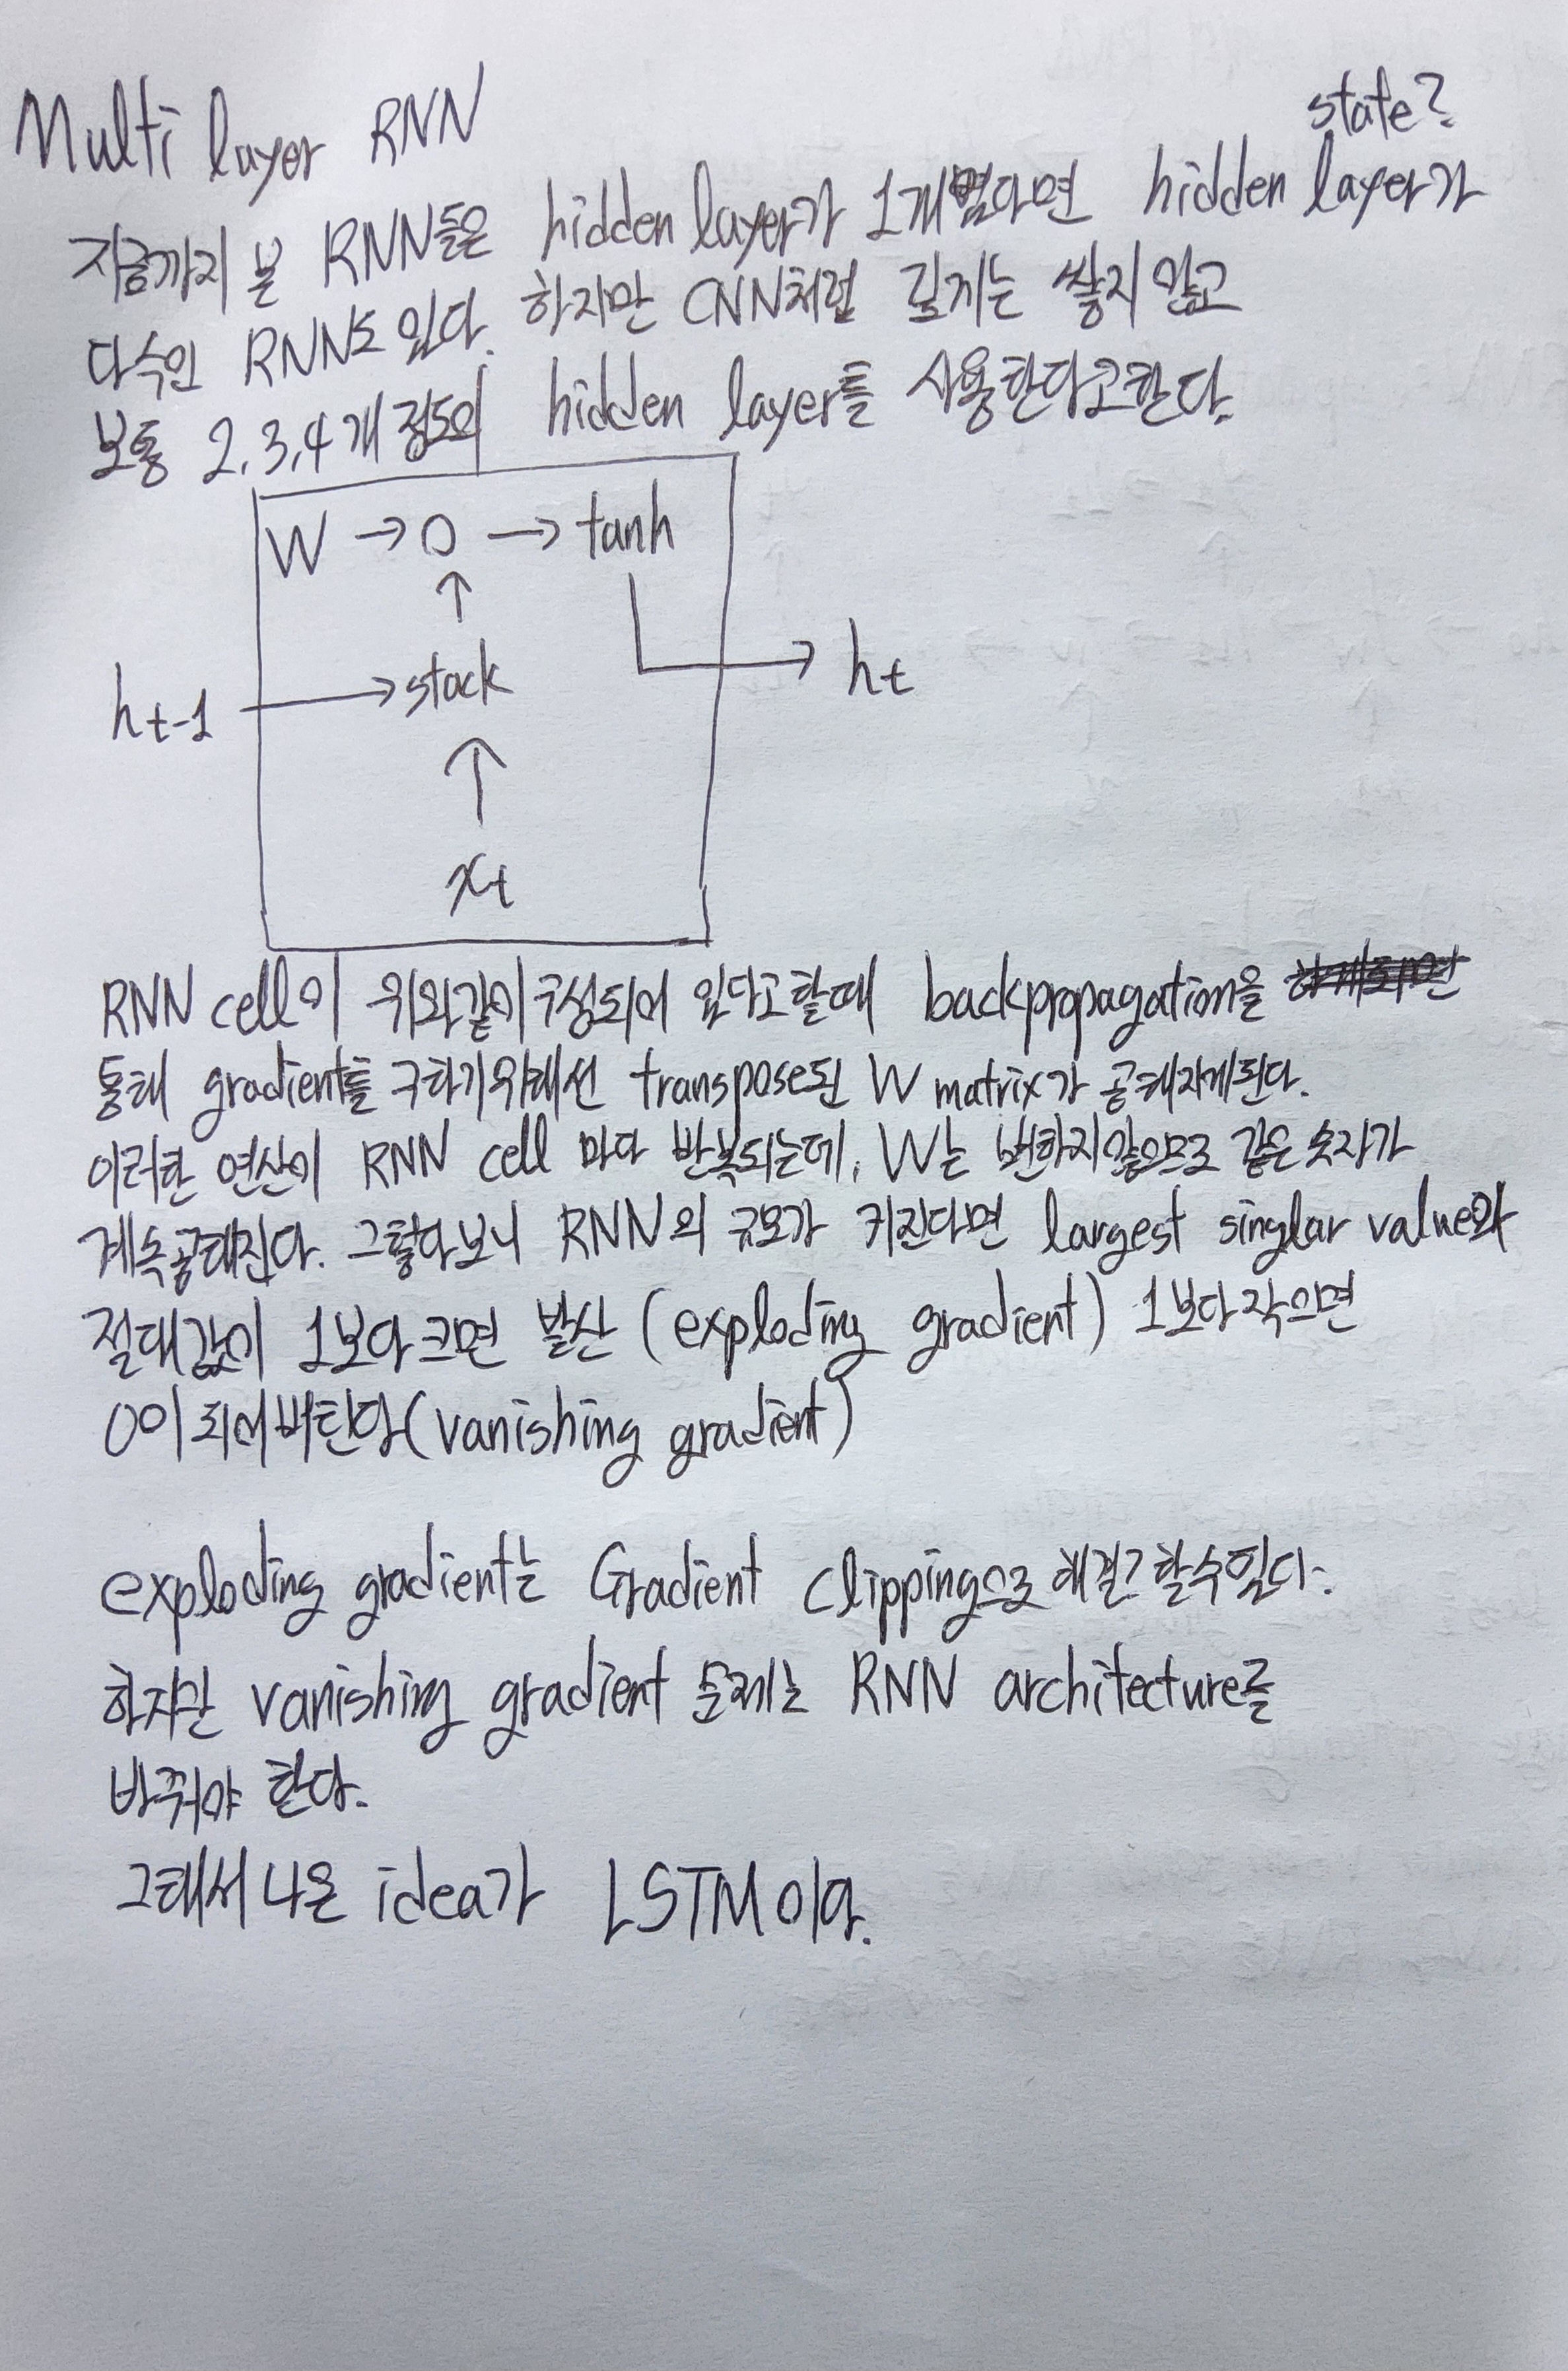 Multi layer RNN
state?
지금까지 본 RNN들은 hidden layer가 1개였다면 hidden layer가
다수인 RNN도 있다. 하지만 CNN처럼 깊게는 쌓지 않고
보통 2,3,4개 정도의 hidden layer를 사용한다고한다.
W → O → tanh
↑
h t-1 → stack
→ h t
↑
x t
RNN cell이 위와같이 구성되어 있다고할때 backpropagation을
통해 gradient를 구하기위해선 transpose된 W matrix가 곱해지게된다.
이러한 연산이 RNN cell 마다 반복되는데, W는 변하지않으므로 같은 숫자가
계속곱해진다. 그렇다보니 RNN의 규모가 커진다면 largest singlar value의
절대값이 1보다크면 발산 (exploding gradient) 1보다작으면
0이 되어버린다(vanishing gradient)
exploding gradient는 Gradient clipping으로 해결할수있다.
하지만 vanishing gradient 문제는 RNN architecture를
바꿔야 한다.
그래서 나온 idea가 LSTM이다.